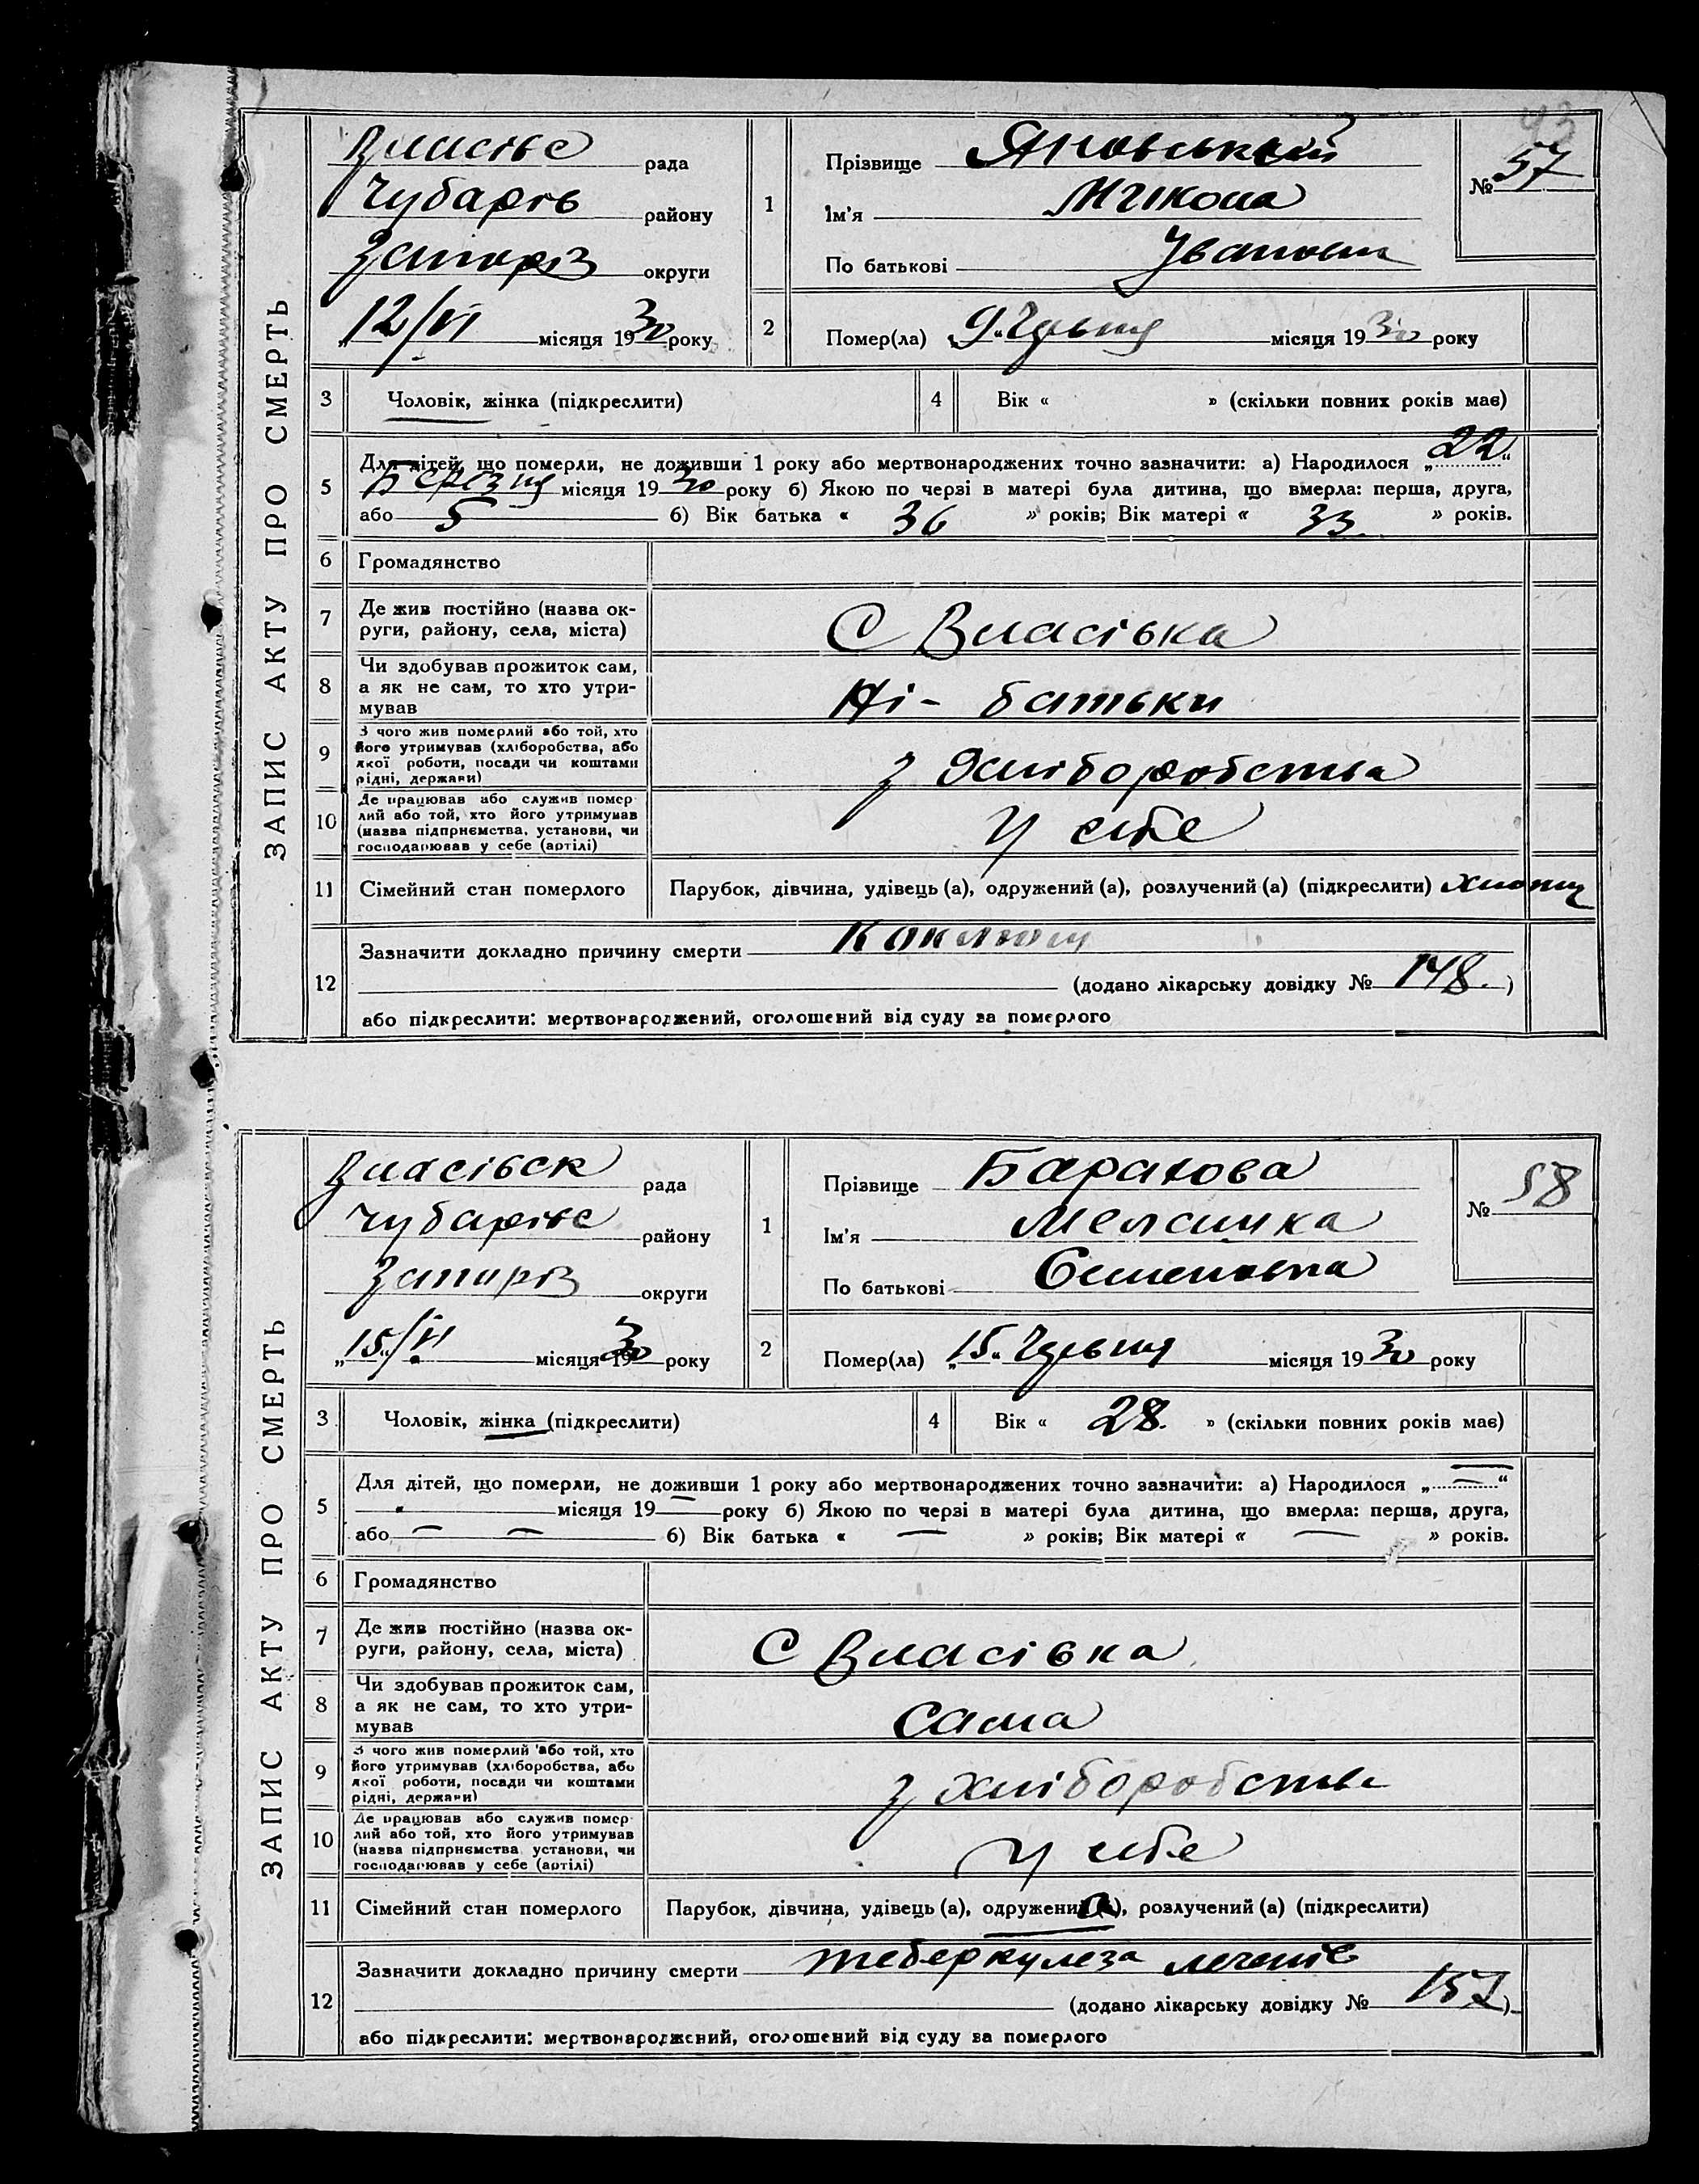 43
ЗАПИС АКТУ ПРО СМЕРТЬ
Власівс рада
Чубарів району
Запоріз округи
„12/VI місяця 1930 року
1
Прізвище Яновський
Ім'я Микола
По батькові Іванович
№ 57
2 Помер(ла) „9“ Червня місяця 1930 року
3 Чоловік, жінка (підкреслити)
4 Вік « » (скільки повних років має)
5 Для дітей, що померли, не доживши 1 року або мертвонароджених точно зазначити: а) Народилося „22“
Березня місяця 1930 року б) Якою по черзі в матері була дитина, що вмерла: перша, друга,
або 5 б) Вік батька « 36 » років; Вік матері « 33 » років.
6 Громадянство
7 Де жив постійно (назва ок-
руги, району, села, міста)
С Власівка
8 Чи здобував прожиток сам,
а як не сам, то хто утри-
мував
Ні - батьки
9 З чого жив померлий або той, хто
його утримував (хліборобства, або
якої роботи, посади чи коштами
рідні, держави)
з хліборобства
10 Де працював або служив помер-
лий або той, хто його утримував
(назва підприємства, установи, чи
господарював у себе (артілі)
У себе
11 Сімейний стан померлого Парубок, дівчина, удівець (а), одружений (а), розлучений (а) (підкреслити) хлопец
12 Зазначити докладно причину смерти Коклюш
(додано лікарську довідку № 148.)
або підкреслити: мертвонароджений, оголошений від суду за померлого
ЗАПИС АКТУ ПРО СМЕРТЬ
Власівськ рада
Чубарівс району
Запоріз округи
„15“/VI місяця 1930 року
1
Прізвище Баранова
Ім'я Меланка
По батькові Семенівна
№ 58
2 Помер(ла) „15“ Червня місяця 1930 року
3 Чоловік, жінка (підкреслити)
4 Вік « 28. » (скільки повних років має)
5 Для дітей, що померли, не доживши 1 року або мертвонароджених точно зазначити: а) Народилося „—“
місяця 19— року б) Якою по черзі в матері була дитина, що вмерла: перша, друга,
або — — б) Вік батька « — » років; Вік матері « — » років.
6 Громадянство
7 Де жив постійно (назва ок-
руги, району, села, міста)
С Власівка
8 Чи здобував прожиток сам,
а як не сам, то хто утри-
мував
Сама
9 З чого жив померлий або той, хто
його утримував (хліборобства, або
якої роботи, посади чи коштами
рідні, держави)
з хліборобства
10 Де працював або служив помер-
лий або той, хто його утримував
(назва підприємства, установи, чи
господарював у себе (артілі)
У себе
11 Сімейний стан померлого Парубок, дівчина, удівець (а), одружений (а), розлучений (а) (підкреслити)
12 Зазначити докладно причину смерти теберкулеза легенів
(додано лікарську довідку № 157)
або підкреслити: мертвонароджений, оголошений від суду за померлого